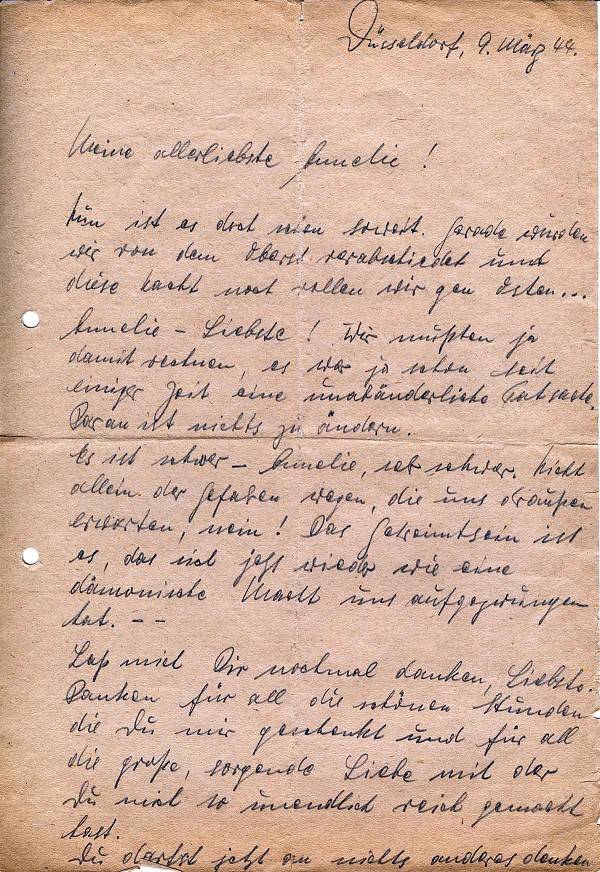 Düsseldorf, 9. März 44.
Meine allerliebste Annelie!
Nun ist es doch soweit. Gerade wurden
wir von dem Oberst verabschiedet und
diese Nacht noch rollen wir gen Osten...
Annelie – Liebste! Wir mußten ja
damit rechnen, es war ja schon seit
einiger Zeit eine unabänderliche Tatsache.
Daran ist nichts zu ändern.
Es ist schwer – Annelie, sehr schwer. Nicht
allein der Gefahren wegen, die uns draußen
erwarten, nein! Das Getrenntsein ist
es, das sich jetzt wieder wie eine
dämonische Macht uns aufgezwungen
hat. – –
Laß mich Dir nochmal danken, Liebste.
Danken für all die schönen Stunden
die Du mir geschenkt und für all
die große, sorgende Liebe mit der
Du mich so unendlich reich gemacht
hast.
Du darfst jetzt an nichts anderes denken